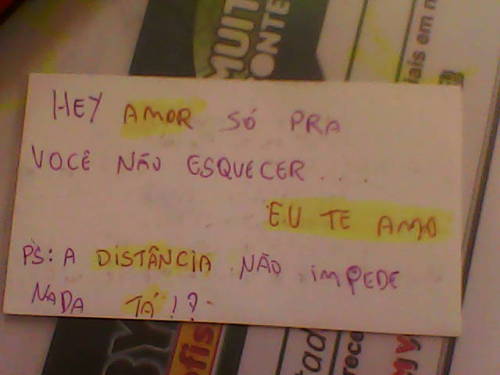 MUIT
ONTE
iais em n
HEY AMOR SÓ PRA
VOCÊ NÃO ESQUECER....
EU TE AMO
PS: A DISTÂNCIA NÃO IMPEDE
NADA TÁ!?
BY
ofis
tad
rece
my